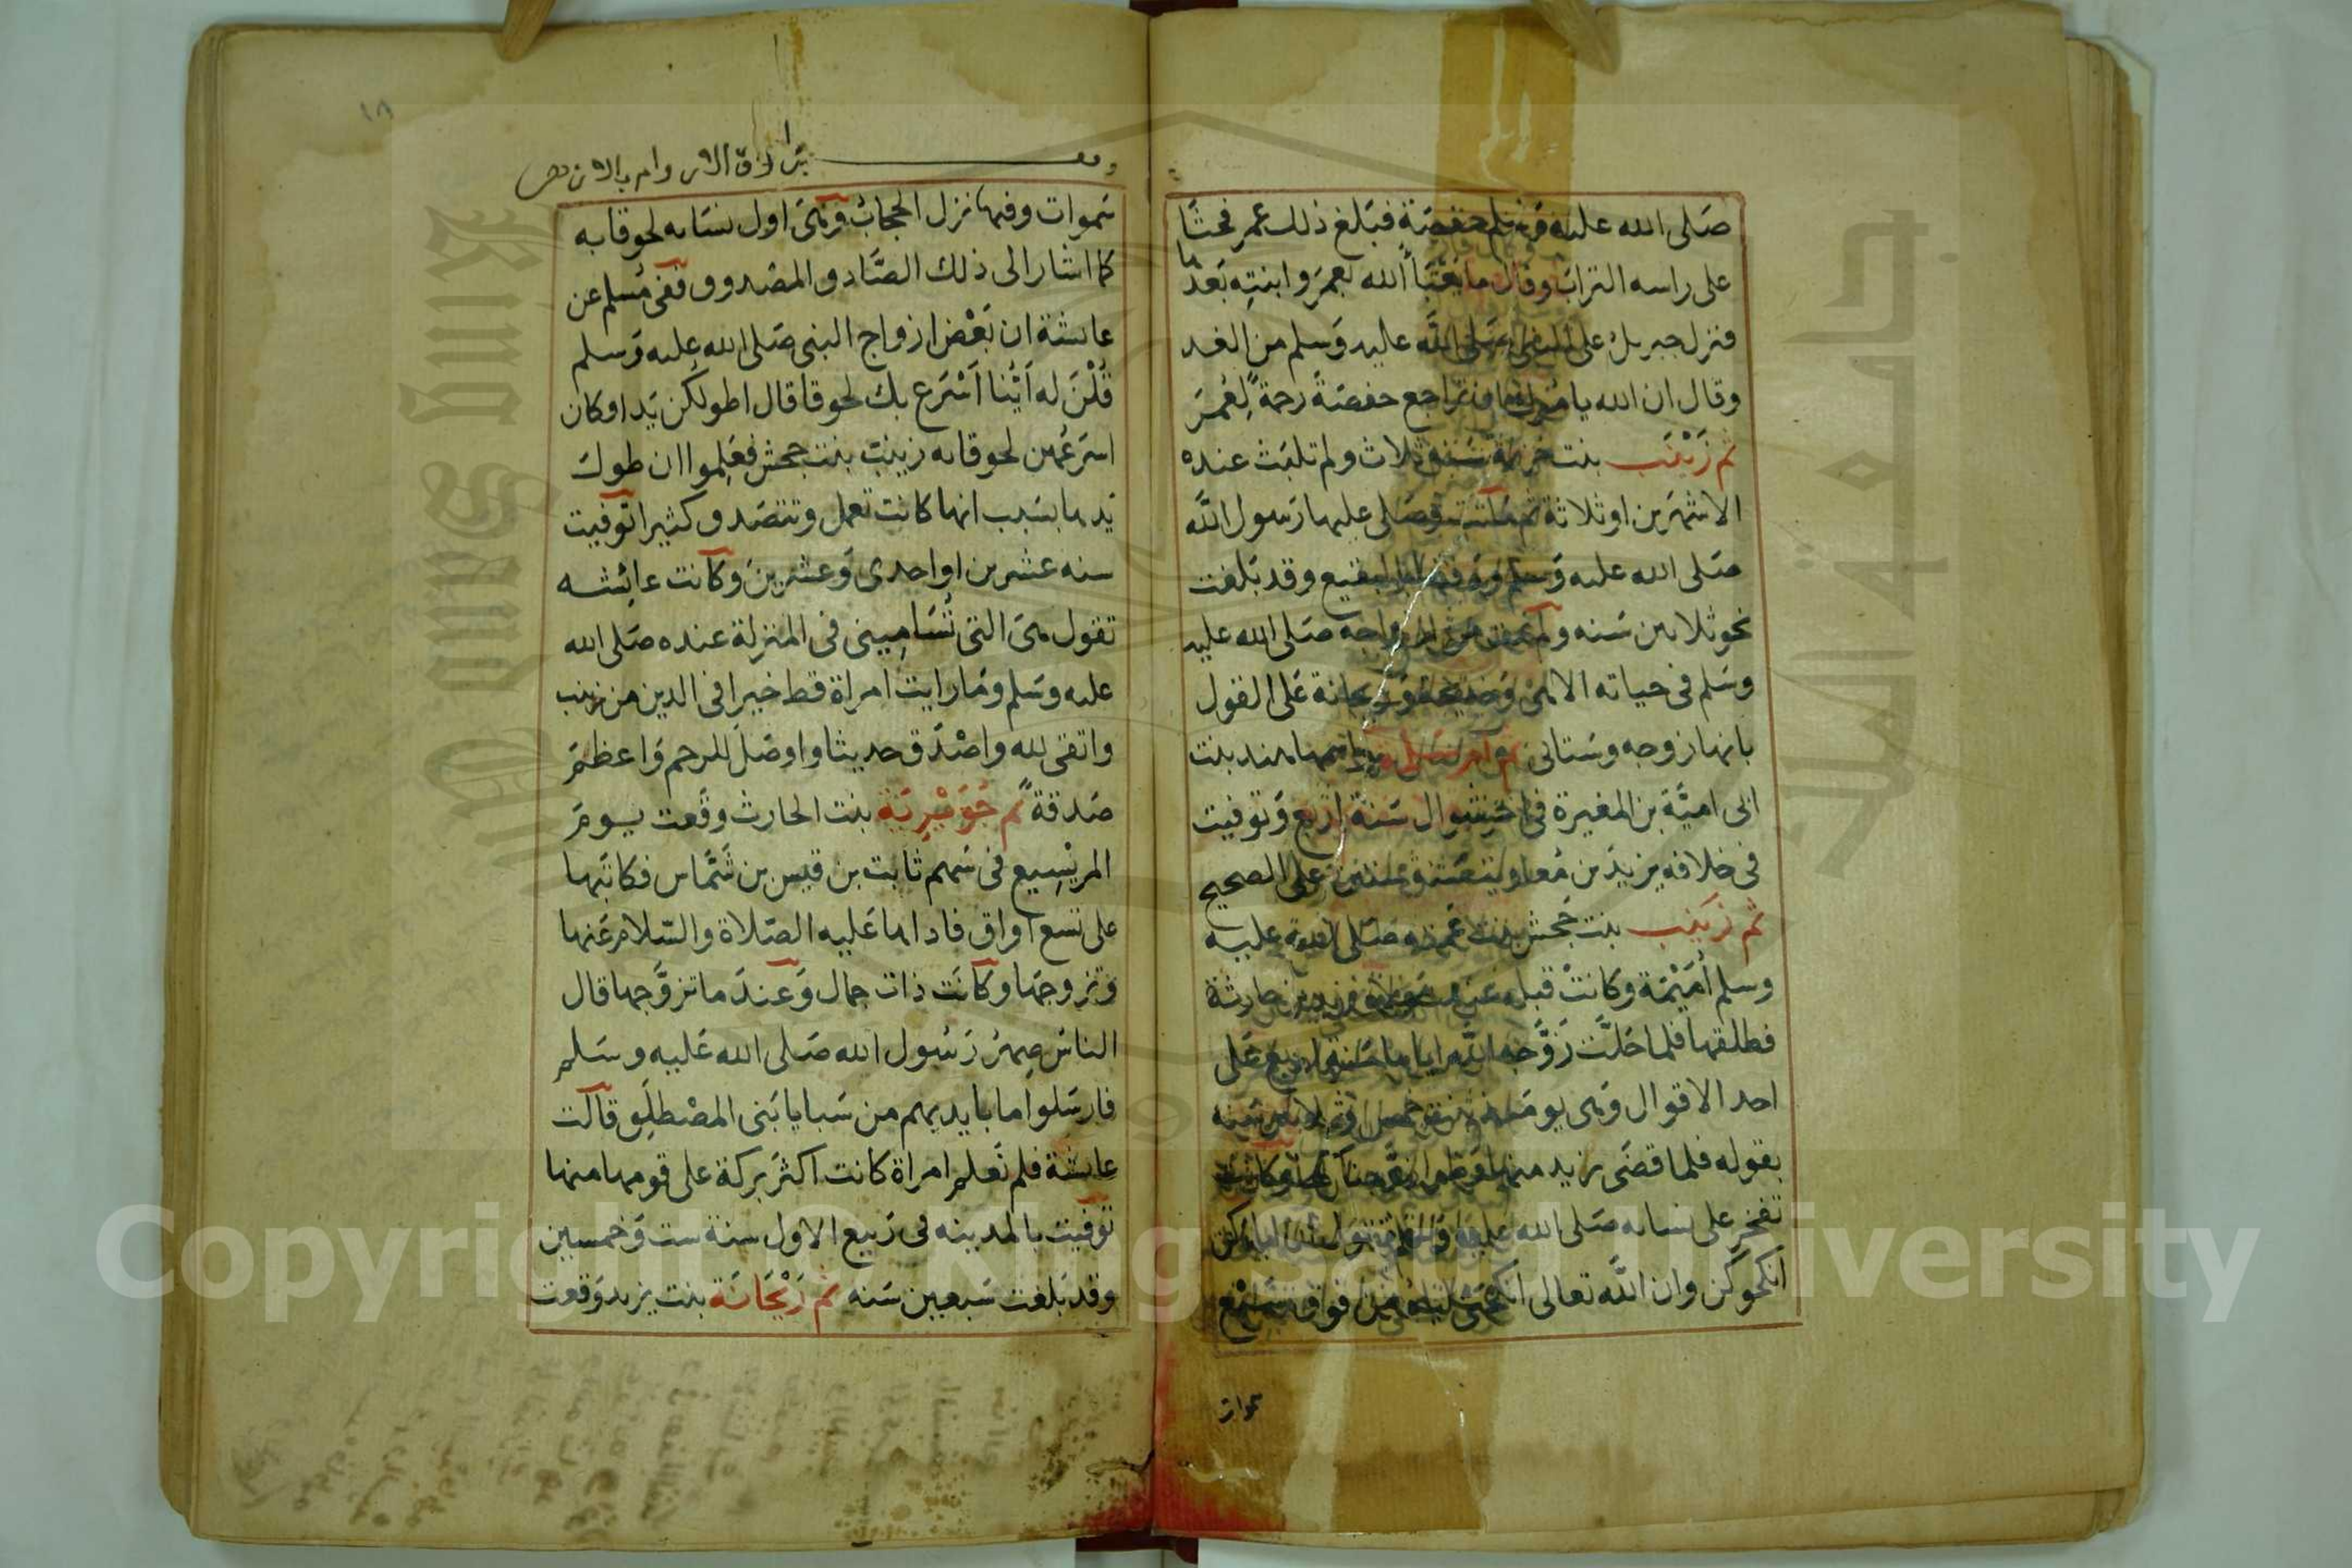 صَلى الله عليه وَسلم حفصَة فبَلغ ذلك عمر فحثَا
على راسه الترابَ وقال ما يَعْبَأ الله بعمَر وابنتِه بَعدها
فنزل جبريل على النبى صَلى الله عليه وَسلم من الغد
وقال ان الله يامُرك ان تراجع حفصَةَ رحمة لِعُمَرَ
ثم زَيْنَب بنت خزيمة سَنة ثلاث ولم تلبَث عنده
الا شهرَين او ثلاثة ثم ماتت وصَلى عليها رَسول الله
صَلى الله عليه وَسلم ودفنها بالبقيع وقد بَلغت
نحو ثلاثين سَنه ولم يمت من ازواجه صَلى الله عليه
وسَلم فى حياته الا هىَ وَخديجة وَريحانة عَلى القول
بانها زوجه وسَتاتى ثم ام سَلمة واسمها هند بنت
ابى اميَّة بن المغيرة فى اخر شوال سَنة اربع وَتوفيت
فى خلافه يزيدَ بن مُعاوية سنة وستين عَلى الصحيح
ثم زَينب بنت جَحش بنت عَمته صَلى الله عليه
وسلم اُمَيْمَة وكانتْ قبله عند مَولاه زيد بن حارثة
فطلقها فلما حَلَّت زَوَّجه الله اياها سَنة اربع عَلى
احد الاقوال وَهى يومَئذ بنت خمس وثلاثين سَنه
بقوله فلما قضَى زيد منها وَطرا زوَّجناكها وكانت
تفخر على نسائه صَلى الله عليه وَسلم تقول ان اباؤكن
انكحوكن وان الله تعالى انكحنى اياه من فوق سَبْع
سموات
سَموات وفيها نزل الحجابُ وَهىَ اول نسَائه لحوقا به
كما اشار الى ذلك الصَّادق المصْدوق ففى مُسلم عن
عائشة ان بَعْض ازواج النبى صَلى الله عليه وَسلم
قُلْنَ له اَيُّنا اَسْرَع بك لحوقا قال اطولكُن يَدا وكان
اسرَعُهن لحوقا به زينب بنت جحش فعَلِموا ان طول
يَدها بسَبب انها كانت تعمل وتتصَدق كثيرا توفيت
سنه عشرين او احدى وَعشرينَ وكانت عائشه
تقول هىَ التى تُسَامِيني فى المنزلة عنده صَلى الله
عليه وسَلم ومَا رايت امراة قط خيرا فى الدين من زينب
واتقى لله واصْدَق حديثا واوصَلَ للرحم وَاعظمَ
صَدقة ثم جُوَيْرِيَة بنت الحارث وقَعت يومَ
المريْسِيع فى سَهم ثابت بن قيس بن شَمَّاس فكاتبَها
على تسع اواق فاداها عَليه الصَلاة والسَلام عَنها
وتزوجَها وكانَت ذات جمال وَعندَ ما تزوَّجها قال
الناسُ صِهرُ رَسُول الله صَلى الله عَليه وسَلم
فارسَلوا ما بايديهم من سَبايا بَنى المصْطلِق قالت
عائشَة فلم نَعلم امراة كانت اكثرَ بركة على قومها منها
توفيَت بالمدينه فى رَبيع الاول سنة ست وَخمسين
وقد بَلغت سَبعين سَنه ثم رَيْحَانَة بنت يزيد وَقعت
Copyright © King Saud University